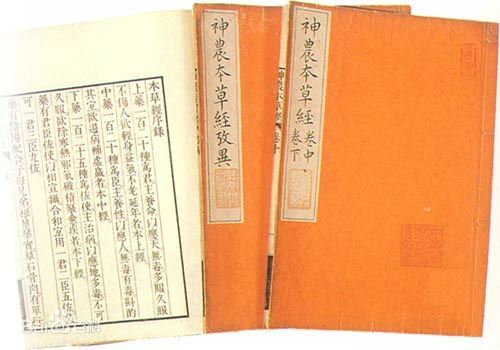 神農本草經 卷中
卷下
神農本草經攷異
本草經序錄
上藥一百二十種爲君主養命以應天無毒多服久服
不傷人欲輕身益氣不老延年者本上經
中藥一百二十種爲臣主養性以應人無毒有毒斟酌
其宜欲遏病補虛羸者本中經
下藥一百二十五種爲佐使主治病以應地多毒不可
久服欲除寒熱邪氣破積聚愈疾者本下經
藥有君臣佐使以相宣攝合和宜用一君二臣五佐
可一君三臣九佐
藥有陰陽配合子母兄弟根莖華實草石骨肉有單